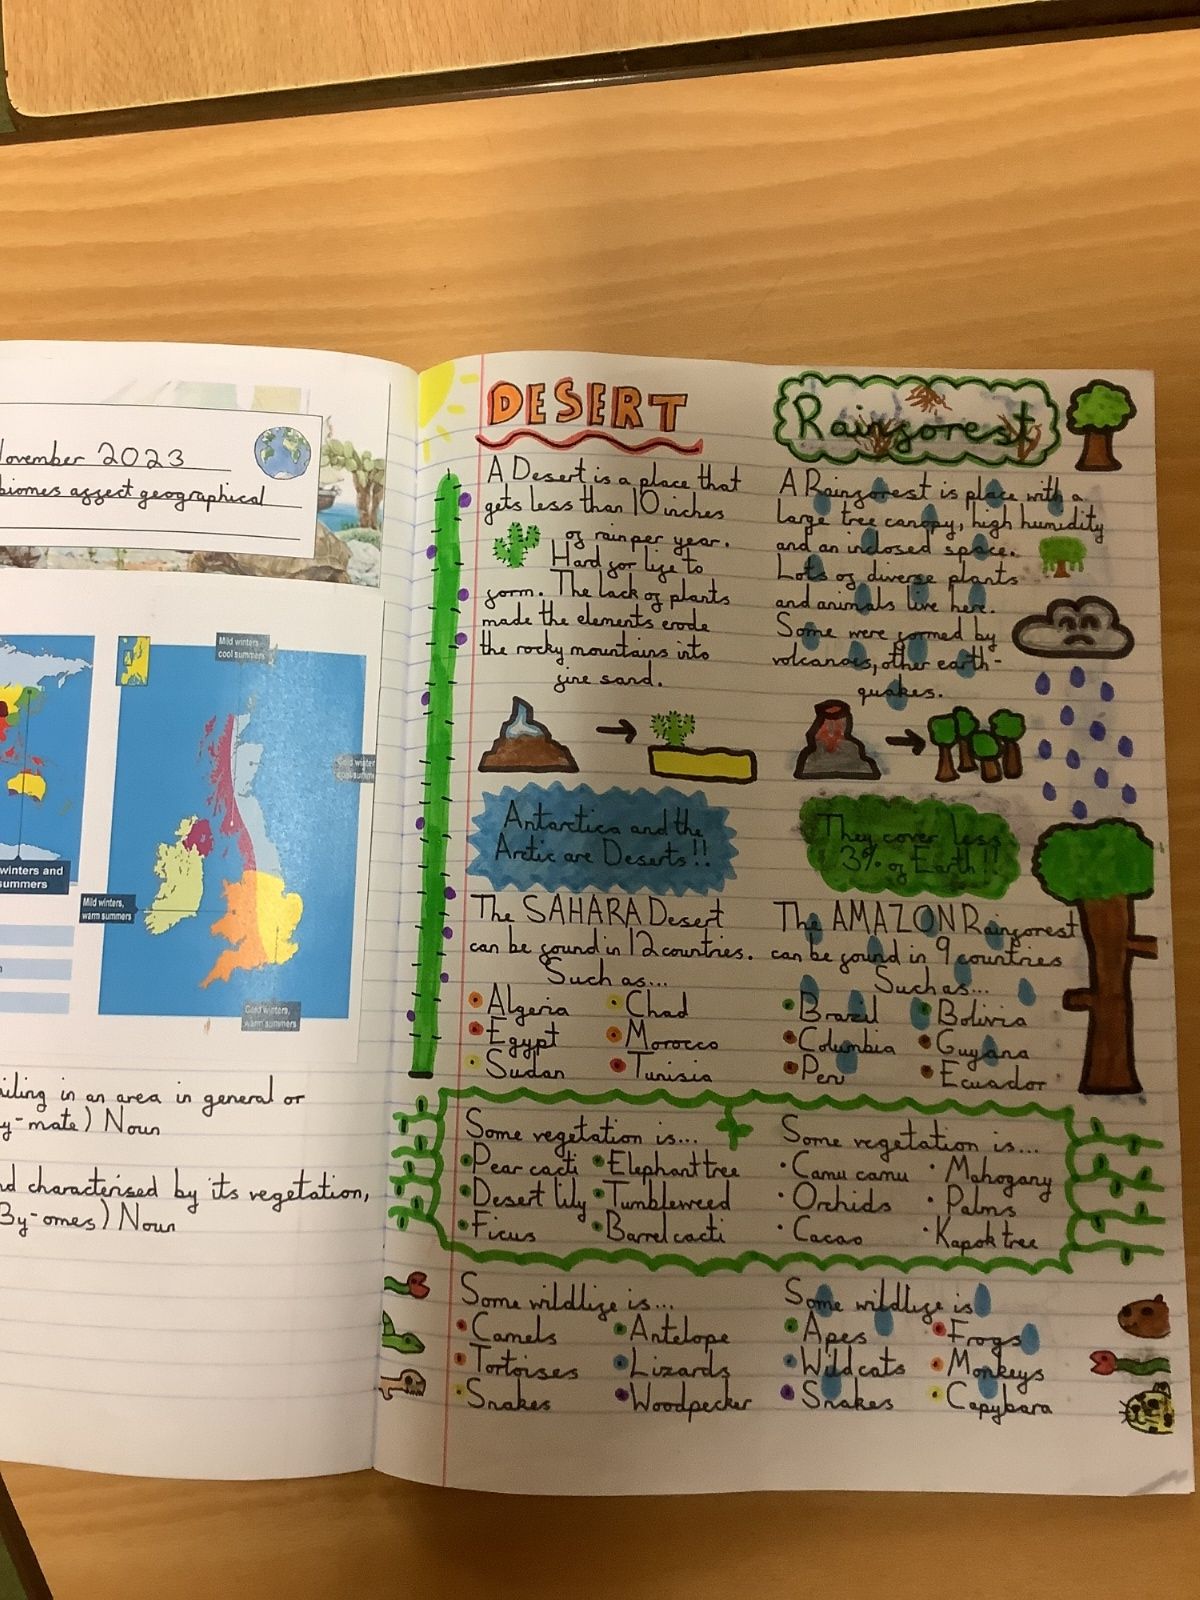 November 2023
biomes affect geographical
Mild winters
cool summers
Cold winter
cool summ
winters and
summers
Mild winters,
warm summers
Cold winters,
warm summers
ailing in an area in general or
y-mate) Noun
nd characterised by its vegetation,
By-omes) Noun
DESERT
A Desert is a place that
gets less than 10 inches
of rain per year.
Hard for life to
form. The lack of plants
made the elements erode
the rocky mountains into
fine sand.
Antarctica and the
Arctic are Deserts!!
The SAHARA Desert
can be found in 12 countries.
Such as...
Algeria Chad
Egypt Morocco
Sudan Tunisia
Some vegetation is...
Pear cacti Elephant tree
Desert lily Tumbleweed
Ficus Barrel cacti
Some wildlife is...
Camels Antelope
Tortoises Lizards
Snakes Woodpecker
Rainforest
A Rainforest is place with a
large tree canopy, high humidity
and an inclosed space.
Lots of diverse plants
and animals live here.
Some were formed by
volcanoes, other earth-
quakes.
They cover less
3% of Earth!!
The AMAZON Rainforest
can be found in 9 countries
Such as...
Brazil Bolivia
Columbia Guyana
Peru Ecuador
Some vegetation is...
Camu camu Mahogany
Orchids Palms
Cacao Kapok tree
Some wildlife is
Apes Frogs
Wildcats Monkeys
Snakes Capybara